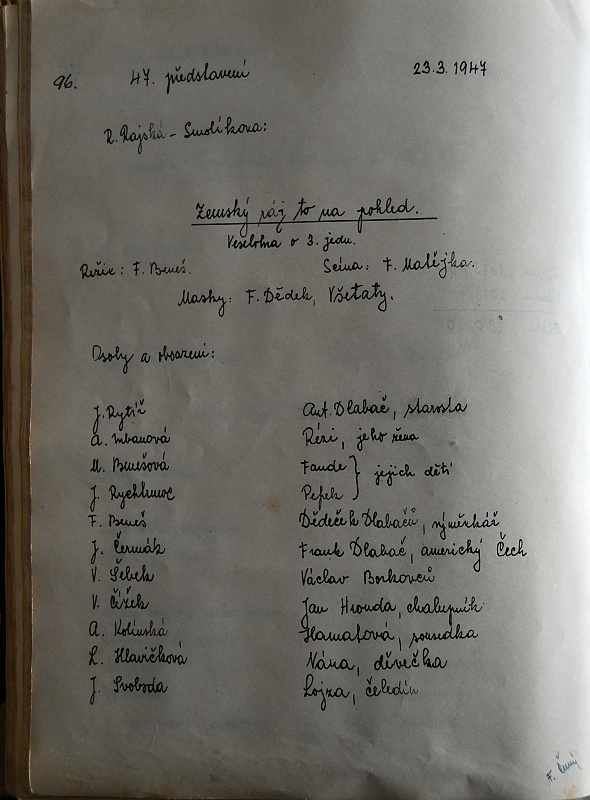 96. 47. představení 23.3.1947
R. Rajská - Smolíkova:
Zemský ráj to na pohled.
Veselohra o 3. jedn.
Režie: F. Beneš. Scéna: F. Matějka.
Masky: F. Dědek, Všetaty.
Osoby a obsazení:
J. Rytíř Ant. Dlabač, starosta
A. Urbanová Rézi, jeho žena
M. Benešová Fanda } jejich děti
J. Rychlovec Pepek
F. Beneš Dědeček Dlabačů, výměnkář
J. Čermák Frank Dlabač, americký Čech
V. Šebek Václav Borkovců
V. Čížek Jan Hrouda, chalupník
A. Kolínská Hamatová, sousedka
L. Hlavičková Nána, děvečka
J. Svoboda Lojza, čeledín
F. Černý